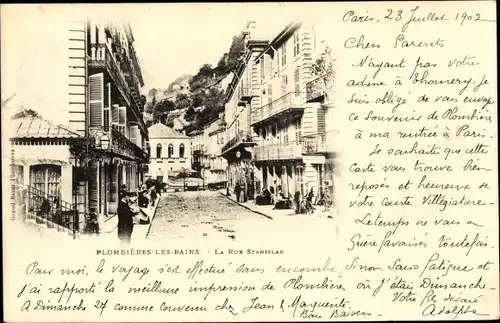 Paris, 23 Juillet 1902
Chers Parents
N'ayant pas votre
adresse à Thomery, Je
suis obligé de vous envoyer
ce Souvenir de Plombière
à ma rentrée à Paris.
Je souhaite que cette
Carte vous trouve bien
reposés et heureux de
votre Courte Villégiature
Le temps ne vous a
Guère favorisés toutefois
PLOMBIÈRES-LES-BAINS. - LA RUE STANISLAS
Pour moi, le voyage s'est effectué sans encombre, si non sans fatigue et
j'ai rapporté la meilleure impression de Plombière où j'étais Dimanche
A Dimanche 27 comme convenu chez Jean & Marguerite. Votre fils dévoué
Bons Baisers Adolphe